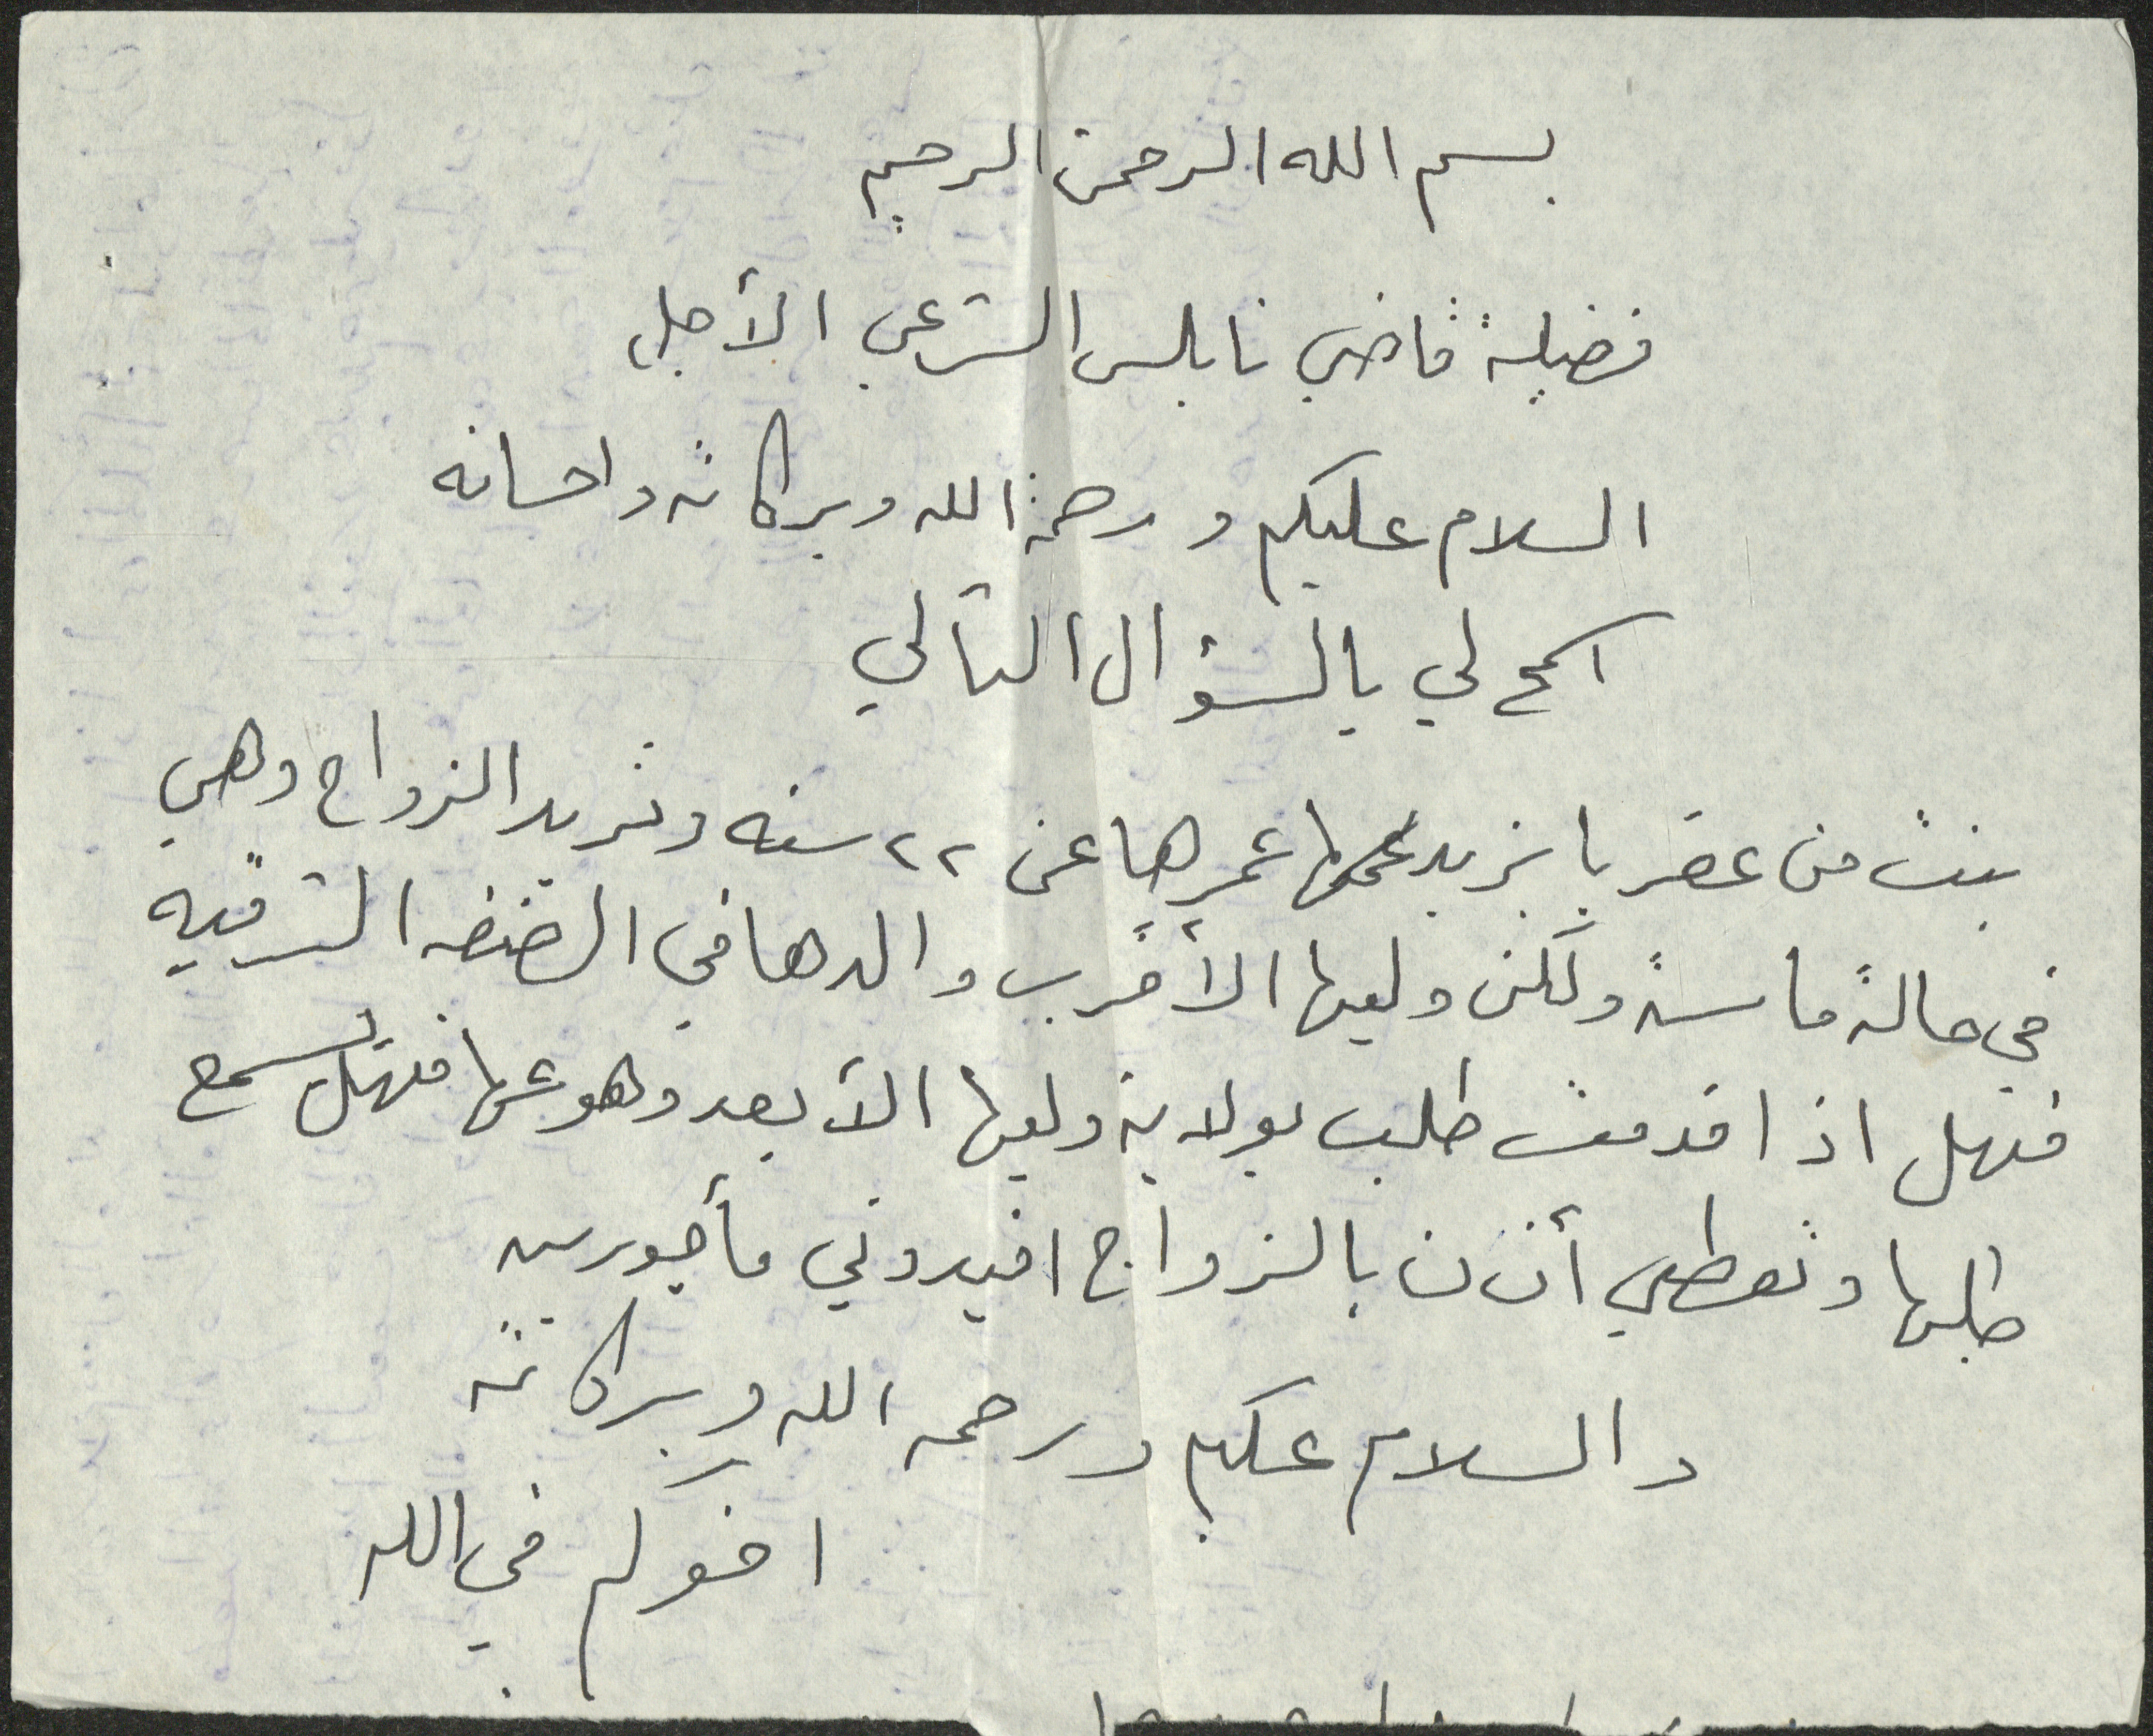 بسم الله الرحمن الرحيم
فضيلة قاضي نابلس الشرعي الأجل
السلام عليكم ورحمة الله وبركاته واحسانه
اسمح لي بالسؤال التالي
بنت من عقربا يزيد عمرها عن ٢٢ سنه وتريد الزواج وهي
في حالة ماسة ولكن وليها الأقرب والدها في الضفه الشرقيه
فهل اذا قدمت طلب بولاية وليها الأبعد وهو عمها فهل تسمع
طلبها وتعطي أذن بالزواج افيدوني مأجورين
والسلام عليكم ورحمه الله وبركاته
اخوكم في الله